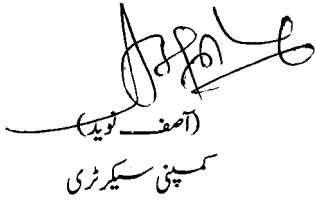 (آصف نوید)
کمپنی سیکرٹری